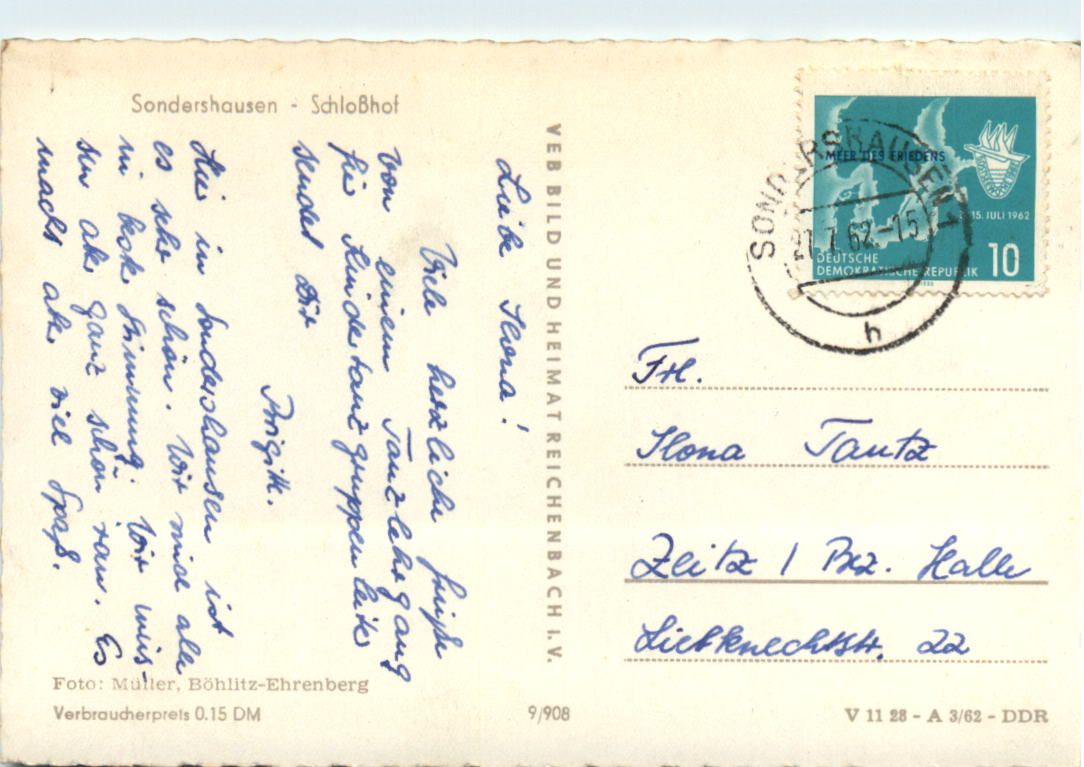 Sondershausen - Schloßhof
Liebe Ilona!
Viele herzliche Grüße
von einem Tanzlehrgang
für Kindertanzgruppenleiter
sendet Dir
Brigitte.
Hier in Sondershausen ist
es sehr schön. Wir sind alle
in hoher Stimmung. Wir müs-
sen aber ganz schön ran. Es
macht aber viel Spaß.
Foto: Müller, Böhlitz-Ehrenberg
Verbraucherpreis 0.15 DM
VEB BILD UND HEIMAT REICHENBACH I. V.
9/908
MEER DES FRIEDENS
15. JULI 1962
DEUTSCHE
DEMOKRATISCHE REPUBLIK 10
SONDERSHAUSEN 1
7.62-15
h
Frl.
Ilona Tautz
Zeitz / Bez. Halle
Liebknechtstr. 22
V 11 28 - A 3/62 - DDR